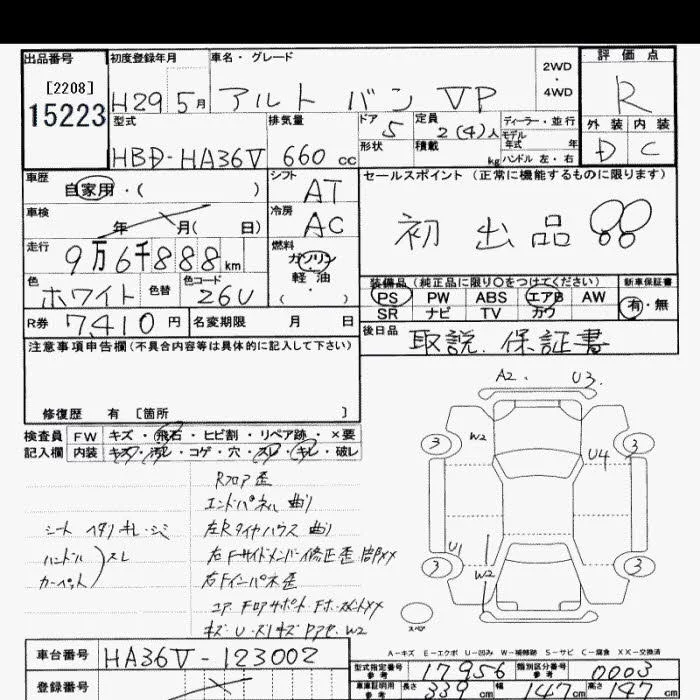 出品番号 初度登録年月 車名・グレード 2WD・4WD 評価点
[2208]
15223 H29 5月 アルト バン VP R
型式 排気量 ドア 5 定員 2(4)人 ディーラー・並行 外装 内装
HBD-HA36V 660cc 形状 積載 kg モデル年式 年 ハンドル 左・右 D C
車歴 自家用・( ) シフト AT セールスポイント (正常に機能するものに限ります)
車検 年 月( 日) 冷房 AC 初出品
走行 9万6千888km 燃料 ガソリン 軽・油 ( )
色 ホワイト 色替 色コード 26U
装備品(純正品に限り○をつけてください) 新車保証書
PS PW ABS エアB AW 有・無
SR ナビ TV カワ
R券 7410円 名変期限 月 日 後日品 取説. 保証書
注意事項申告欄(不具合内容等は具体的に記入して下さい)
修復歴 有 [箇所 ]
検査員 FW キズ・飛石・ヒビ割・リペア跡・×要
記入欄 内装 キズ・汚レ・コゲ・穴・スレ・キレ・破レ
A2. U3.
3 W2 3
U4
U1
3 W2 3
スペア
Rフロア歪
エンドパネル 曲り
シート ヘタリ キレ・シミ 左Rタイヤハウス 曲り
ハンドル
カーペット ) スレ
右Fサイドメンバー修正歪
右Fインパネ歪
A-キズ E-エクボ U-凹み W-補修跡 S-サビ C-腐食 XX-交換済
車台番号 HA36V-123002
登録番号
型式指定番号 参考 17956 類別区分番号 参考 0003
車庫証明用 参考 長さ 339cm 幅 147cm 高さ cm